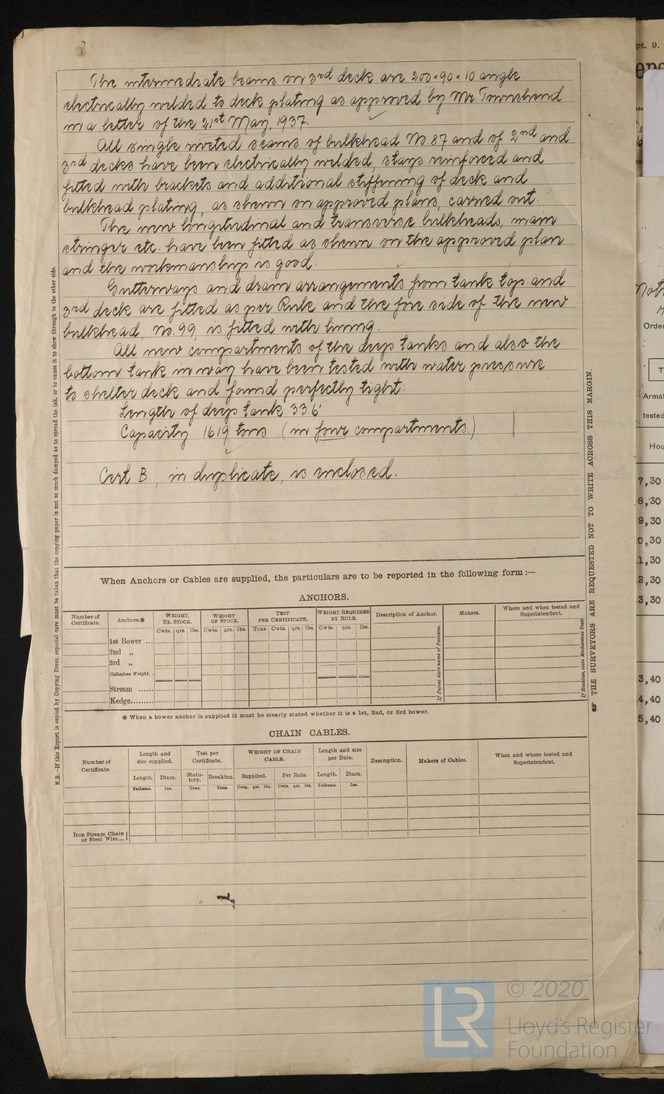 The intermediate beams on 3rd deck are 200×90×10 angle
electrically welded to deck plating as approved by Mr Townshend
in a letter of the 21st May, 1937.
All single riveted seams of bulkhead No. 87 and of 2nd and
3rd decks have been electrically welded, stays reinforced and
fitted with brackets and additional stiffening of deck and
bulkhead plating, as shown on approved plans, carried out.
The new longitudinal and transverse bulkheads, main
stringer etc. have been fitted as shown on the approved plan
and the workmanship is good.
Gutterways and drain arrangements from tank top and
3rd deck are fitted as per Rule and the fore side of the new
bulkhead, No. 99 is fitted with lining.
All new compartments of the deep tanks and also the
bottom tank in way have been tested with water pressure
to shelter deck and found perfectly tight.
Length of deep tank 33.6'
Capacity 1619 tons (in four compartments.)
Cert. B, in duplicate, is inclosed.
When Anchors or Cables are supplied, the particulars are to be reported in the following form :—
ANCHORS.
Number of Certificate. Anchors.* WEIGHT, EX. STOCK. WEIGHT OF STOCK. TEST PER CERTIFICATE. WEIGHT REQUIRED BY RULE. Description of Anchor. Makers. Where and when tested and Superintendent.
Cwts. qrs. lbs. Cwts. qrs. lbs. Tons Cwts. qrs. lbs. Cwts. qrs. lbs.
1st Bower ...
2nd „
3rd „
Collective Weight.
Stream ......
Kedge........
If Patent state name of Patentee.
* When a bower anchor is supplied it must be clearly stated whether it is a 1st, 2nd, or 3rd bower.
CHAIN CABLES.
Number of Certificate. Length and size supplied. Test per Certificate. WEIGHT OF CHAIN CABLE. Length and size per Rule. Description. Makers of Cables. When and where tested and Superintendent.
Length. Diam. Statutory. Breaking. Supplied. Per Rule. Length. Diam.
Fathoms. Ins. Tons. Tons. Cwts. qrs. lbs. Cwts. qrs. lbs. Fathoms. Ins.
Iron Stream Chain or Steel Wire...
N.B.—If this Report is copied by Copying Press, especial care must be taken that the copying paper is not so much damped as to spread the ink, or to cause it to show through to the other side.
THE SURVEYORS ARE REQUESTED NOT TO WRITE ACROSS THIS MARGIN.
pt. 9.
Order
T
tested
Hou
7,30
8,30
9,30
0,30
1,30
2,30
3,30
3,40
4,40
5,40
LR
© 2020
Lloyd's Register
Foundation